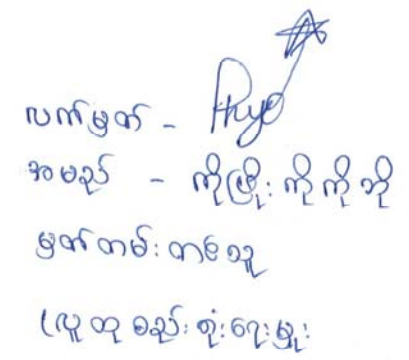 လက်မှတ် - Phyo
အမည် - ကိုဖြိုးကိုကိုဘို
မှတ်တမ်းတင်သူ
(လူထုစည်းရုံးရေးမှူး